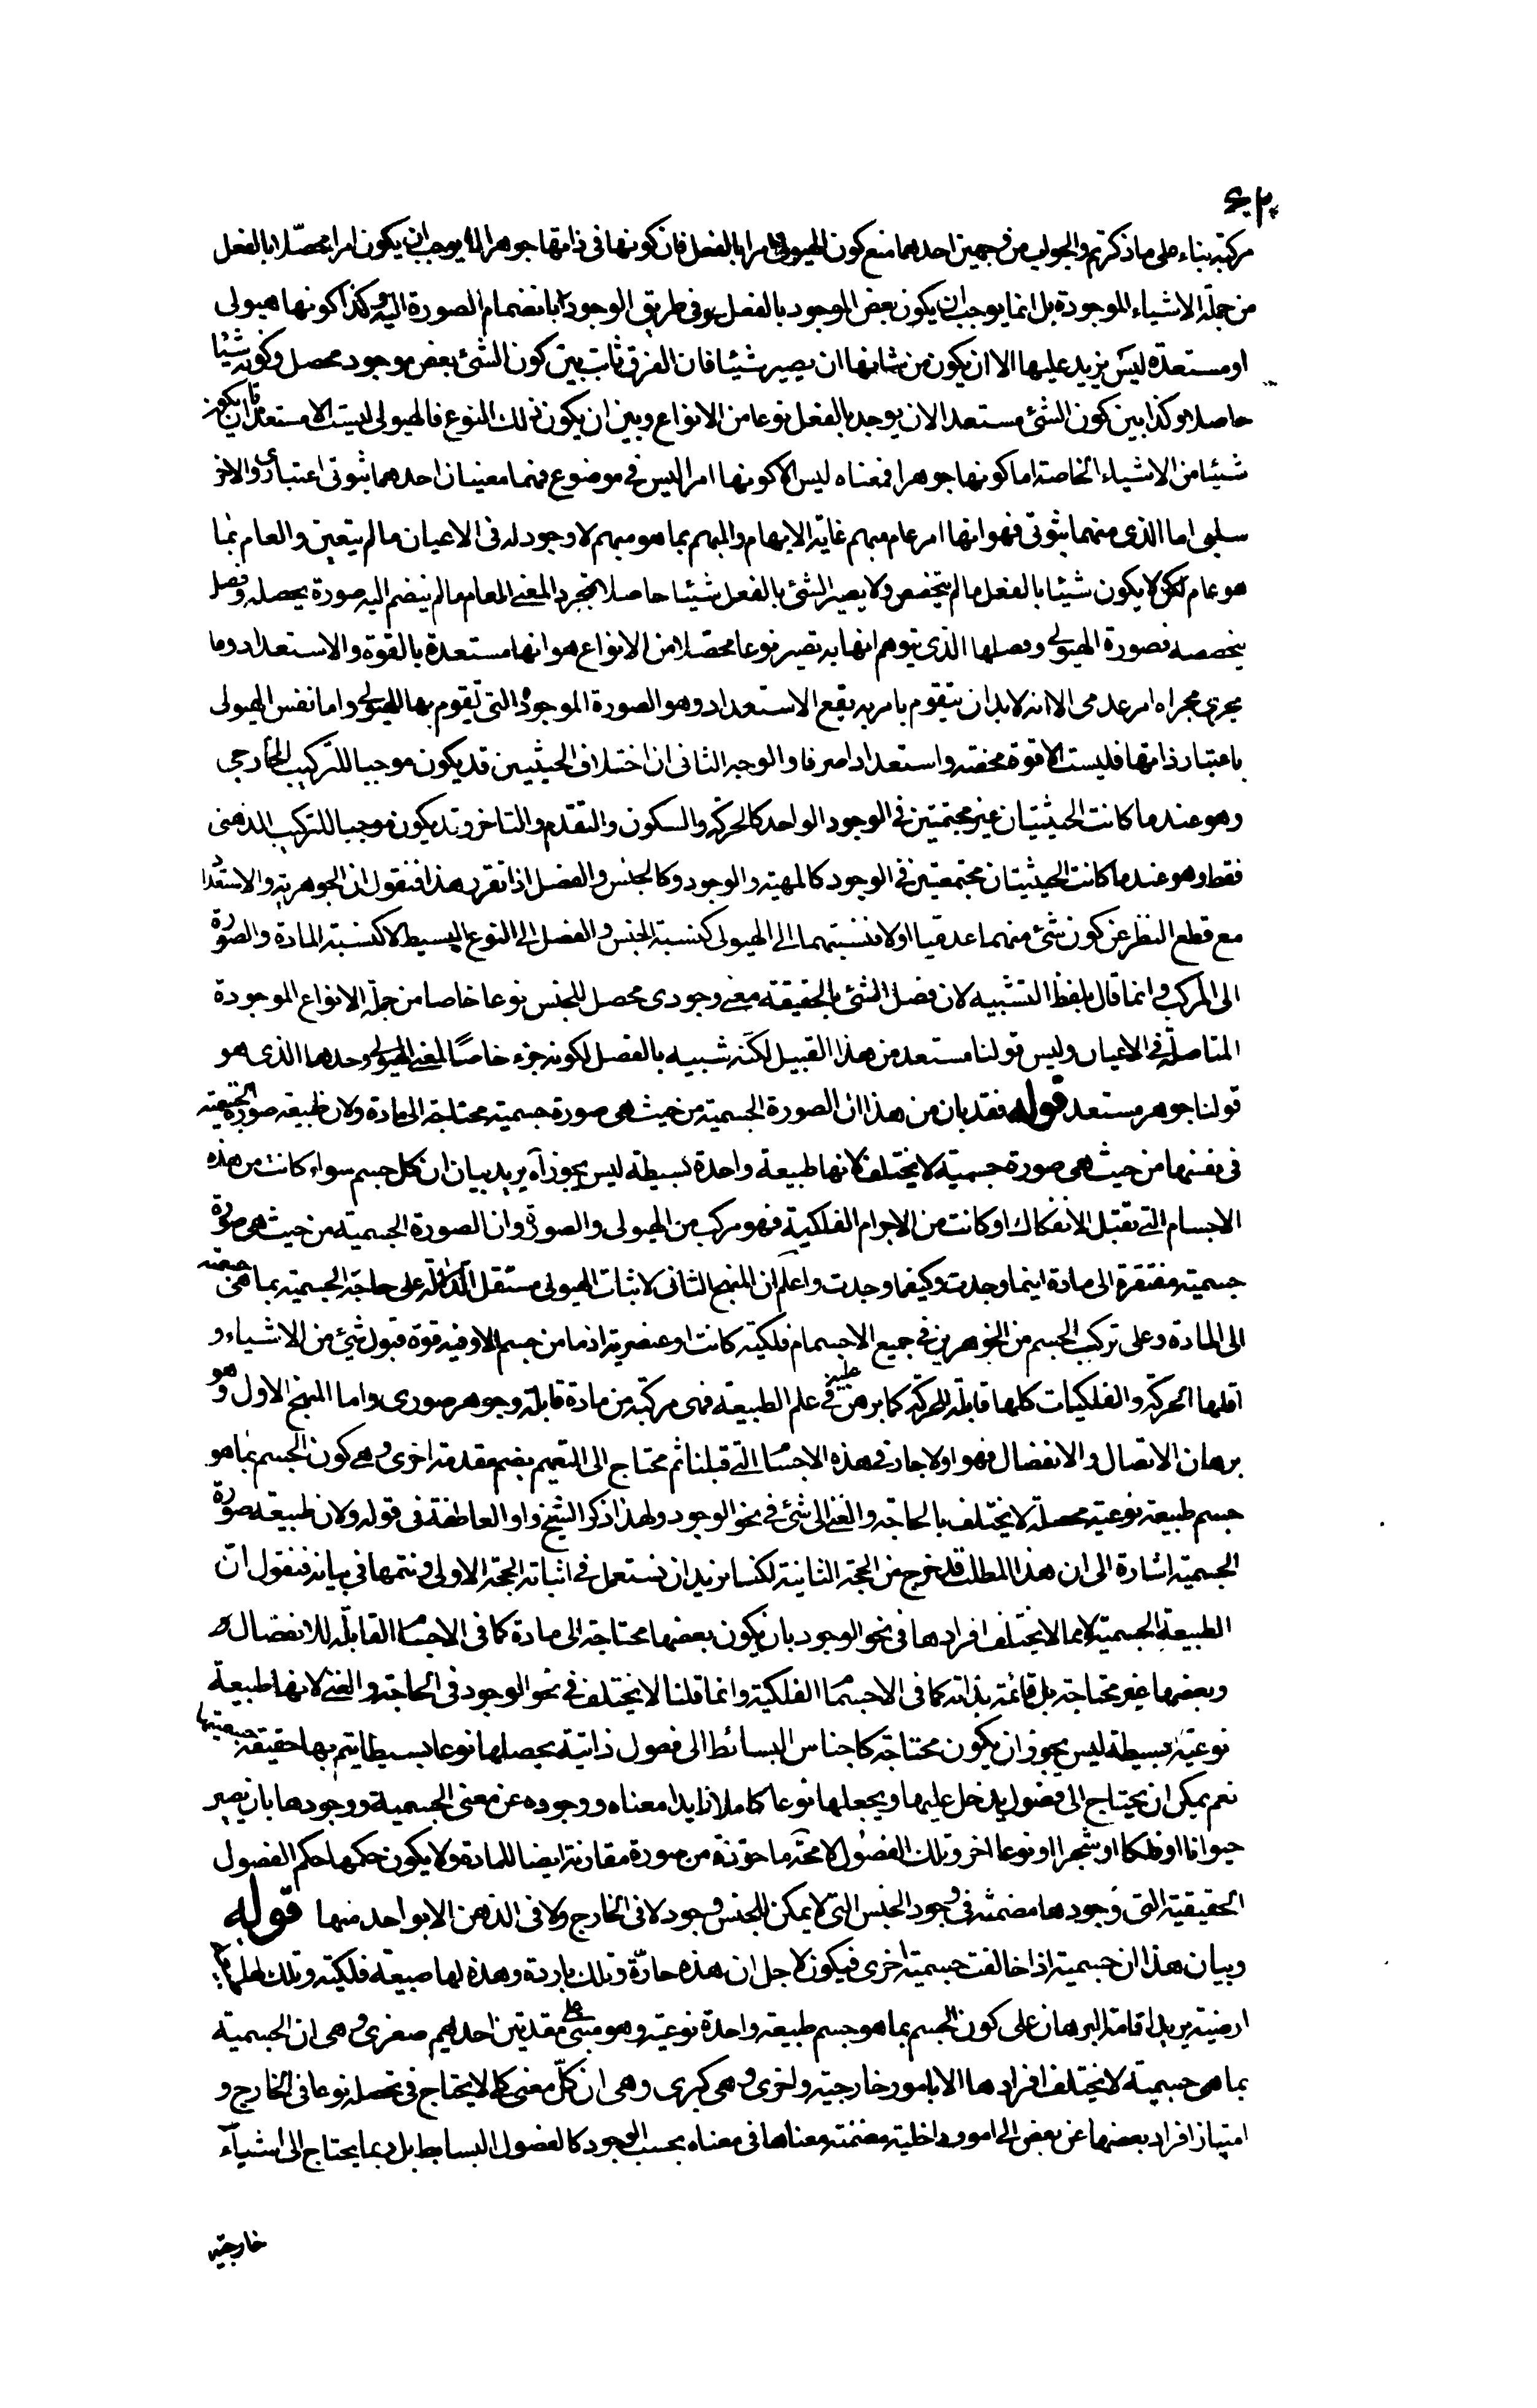 مركبة بناء على ما ذكرتم والجواب من وجهين احدهما منع كون الهيولى امرا بالفعل فان كونها فى ذاتها جوهرا لا يوجب ان يكون امرا محصّلا بالفعل
من جملة الاشياء الموجودة بل انما يوجب ان يكون بعض الموجود بالفعل وفى طريق الوجود بانضمام الصورة اليه وكذا كونها هيولى
او مستعدة ليس يزيد عليها الا ان يكون من شانها ان يصير شيئا فان الفرق ثابت بين كون الشئ بعض موجود محصل وكونه شيئا
حاصلا وكذا بين كون الشئ مستعدا لان يوجد بالفعل نوعا من الانواع وبين ان يكون ذلك النوع فالهيولى ليست الا مستعدة لان يكون
شيئا من الاشياء الخاصة اما كونها جوهرا فمعناه ليس الا كونها امرا ليس فى موضوع فهما معنيان احدهما ثبوتى اعتبارى والاخر
سلبى اما الذى منهما ثبوتى فهو انها امر عام مبهم غاية الابهام والمبهم بما هو مبهم لا وجود له فى الاعيان ما لم يتعين والعام بما
هو عام لا يكون شيئا بالفعل ما لم يتخصص ولا يصير الشئ بالفعل شيئا حاصلا بمجرد المعنى العام ما لم ينضم اليه صورة يحصله وفصل
يخصصه فصورة الهيولى وفصلها الذى يتوهم انها به تصير نوعا محصّلا من الانواع هو انها مستعدة بالقوة والاستعداد وما
يجرى مجراه امر عدمى الا انه لا بد ان يتقوم بامر به يقع الاستعداد وهو الصورة الموجودة التى تقوم بها الهيولى واما نفس الهيولى
باعتبار ذاتها فليست الا قوة محضة واستعدادا صرفا والوجه الثانى ان اختلاف الحيثيتين قد يكون موجبا للتركيب الخارجى
وهو عند ما كانت الحيثيتان غير مجتمعتين فى الوجود الواحد كالحركة والسكون والتقدم والتاخر وقد يكون موجبا للتركيب الذهنى
فقط وهو عند ما كانت الحيثيتان مجتمعتين فى الوجود كالمهية والوجود وكالجنس والفصل اذا تقرر هذا فنقول ان الجوهرية والاستعداد
مع قطع النظر عن كون شئ منهما عدميا اولا فنسبتهما الى الهيولى كنسبة الجنس والفصل الى النوع البسيط لا كنسبة المادة والصورة
الى المركب وانما قال بلفظ التشبيه لان فصل الشئ بالحقيقة معنى وجودى محصل للجنس نوعا خاصا من جملة الانواع الموجودة
المتاصلة فى الاعيان وليس قولنا مستعد من هذا القبيل لكنه شبيه بالفصل لكونه جزء خاصّا لمعنى الهيولى وحدها الذى هو
قولنا جوهر مستعد قوله فقد بان من هذا ان الصورة الجسمية من حيث هى صورة جسمية محتاجة الى مادة ولان طبيعة صورة الجسمية
فى نفسها من حيث هى صورة جسمية لا يختلف لانها طبيعة واحدة بسيطة ليس يجوز آه يريد بيان ان كل جسم سواء كانت من هذه
الاجسام التى تقبل الانفكاك او كانت من الاجرام الفلكية فهو مركب من الهيولى والصورة وان الصورة الجسمية من حيث هى صورة
جسمية مفتقرة الى مادة اينما وجدت وكيفما وجدت واعلم ان المنهج الثانى لاثبات الهيولى مستقل الدلالة على حاجة الجسمية بما هى جسمية
الى المادة وعلى تركيب الجسم من الجوهرين فى جميع الاجسام فلكية كانت او عنصرية اذ ما من جسم الا وفيه قوة قبول شئ من الاشياء و
اقلها الحركة والفلكيات كلها قابلة للحركة كما برهن عليه فى علم الطبيعة فهى مركبة من مادة قابلة وجوهر صورى واما المنهج الاول وهو
برهان الاتصال والانفصال فهو اولا جار فى هذه الاجسام التى قبلنا ثم محتاج الى التعميم بضم مقدمة اخرى وهى كون الجسم بما هو
جسم طبيعة نوعية محصلة لا يختلف بالحاجة والغنى الى شئ فى نحو الوجود ولهذا ذكر الشيخ واو العاطفة فى قوله ولان طبيعة صورة
الجسمية اشارة الى ان هذا المطلب قد خرج من الحجة الثانية لكنا نريد ان نستعمل فى اثباته الحجة الاولى ونتمها فى بيانه فنقول انّ
الطبيعة الجسمية مما لا يختلف افرادها فى نحو الوجود بان يكون بعضها محتاجة الى مادة كما فى الاجسام القابلة للانفصال
وبعضها غير محتاجة بل قائمة بذاته كما فى الاجسام الفلكية وانما قلنا لا يختلف فى نحو الوجود فى الحاجة والغنى لانها طبيعة
نوعية بسيطة ليس يجوز ان يكون محتاجة كاجناس البسائط الى فصول ذاتية يحصلها نوعا بسيطا يتم بها حقيقة جسميتها
نعم يمكن ان يحتاج الى فصول يدخل عليها ويجعلها نوعا كاملا زايدا معناه ووجوده عن معنى الجسمية ووجودها بان يصير
حيوانا او فلكا او شجرا او نوعا اخر وتلك الفصول لا محة ماخوذة من صورة مقارنة ايضا للمادة ولا يكون حكمها حكم الفصول
الحقيقية التى وجودها مضمنة فى وجود الجنس التى لا يمكن للجنس وجود لا فى الخارج ولا فى الذهن الا بواحد منها قوله
وبيان هذا ان جسمية اذا خالفت جسمية اخرى فيكون لاجل ان هذه حارّة وتلك باردة وهذه لها طبيعة فلكية وتلك لها طبيعة
ارضية يريد اقامة البرهان على كون الجسم بما هو جسم طبيعة واحدة نوعية وهو مبنى على مقدمتين احديهم صغرى وهى ان الجسمية
بما هى جسمية لا يختلف افرادها الا بامور خارجية واخرى وهى كبرى وهى ان كلّ معنى كلى لا يحتاج فى تحصله نوعا فى الخارج و
امتياز افراد بعضها عن بعض الى امور داخلية مضمنة معناها فى معناه بحسب الوجود كالفصول البسايط بل ربما يحتاج الى اشياء
خارجية